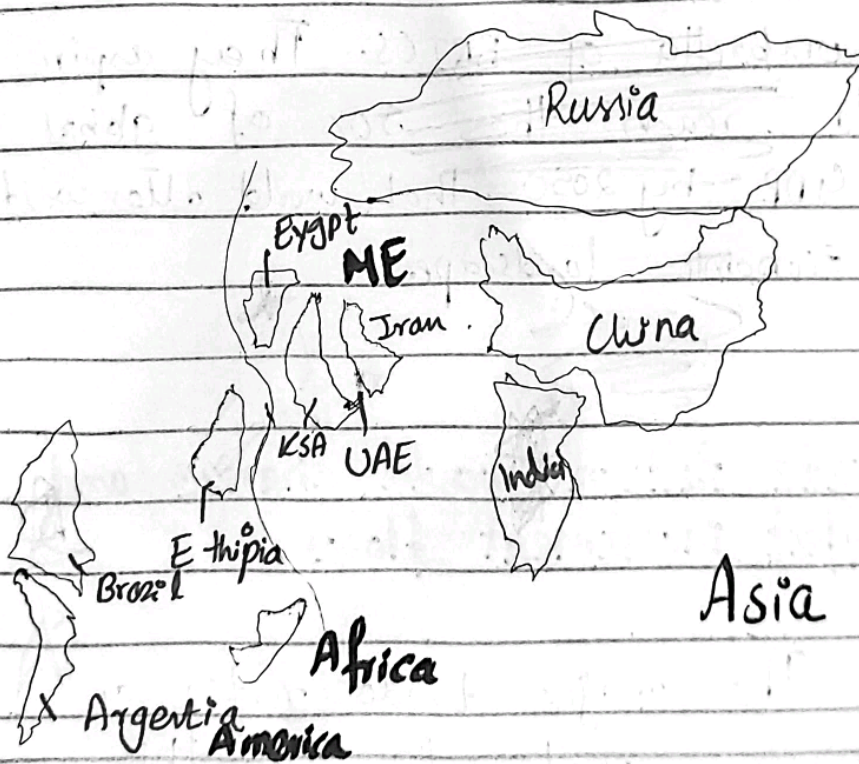 Russia
Eygpt
ME
Iran.
China
KSA
UAE
India
Ethipia
Brazil
Asia
Africa
Argertia
America